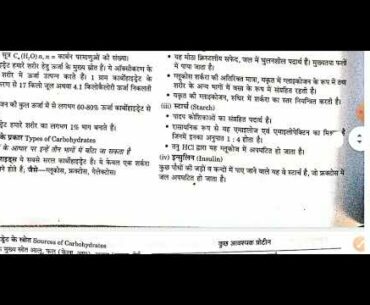 सूत्र Cₙ(H₂O) n, n = कार्बन परमाणुओं की संख्या)
हाइड्रेट हमारे शरीर हेतु ऊर्जा के मुख्य स्रोत हैं। ये ऑक्सीकरण के
शरीर में ऊर्जा उत्पन्न करते हैं। 1 ग्राम कार्बोहाइड्रेट के
रण से 17 किलो जूल अथवा 4.1 किलोकैलोरी ऊर्जा निकलती
जन की कुल ऊर्जा में से लगभग 60-80% ऊर्जा कार्बोहाइड्रेट से
हाइड्रेट हमारे शरीर का लगभग 1% भाग बनाते हैं।
के प्रकार Types of Carbohydrates
के आधार पर इन्हें तीन भागों में बाँटा जा सकता है
राइड्स ये सबसे सरल कार्बोहाइड्रेट हैं। ये केवल एक शर्करा
बने होते हैं, जैसे—ग्लूकोस, फ्रक्टोस, गैलेक्टोस।
हाइड्रेट के स्रोत Sources of Carbohydrates
मुख्य स्रोत आलू, फल (केला, आम),
यह मीठा क्रिस्टलीय सफेद, जल में घुलनशील पदार्थ है। मुख्यतया फलों
में पाया जाता है।
ग्लूकोस शर्करा की अतिरिक्त मात्रा, यकृत में ग्लाइकोजन के रूप में तथा
शरीर के अन्य भागों में वसा के रूप में संग्रहित रहती है।
यकृत की ग्लाइकोजन, रुधिर में शर्करा का स्तर नियन्त्रित करती है।
(iii) स्टार्च (Starch)
पादप कोशिकाओं का संग्रहित पदार्थ है।
रासायनिक रूप से यह एमाइलोज एवं एमाइलोपेक्टिन का मिश्र है
जिनमें इनका अनुपात 1 : 4 होता है।
तनु HCl द्वारा यह ग्लूकोज में अपघटित हो जाता है।
(iv) इन्सुलिन (Insulin)
कुछ पौधों की जड़ों व कन्दों में पाए जाने वाले यह वे स्टार्च हैं, जो फ्रक्टोस में
जल अपघटित हो जाता है।
कुछ आवश्यक प्रोटीन